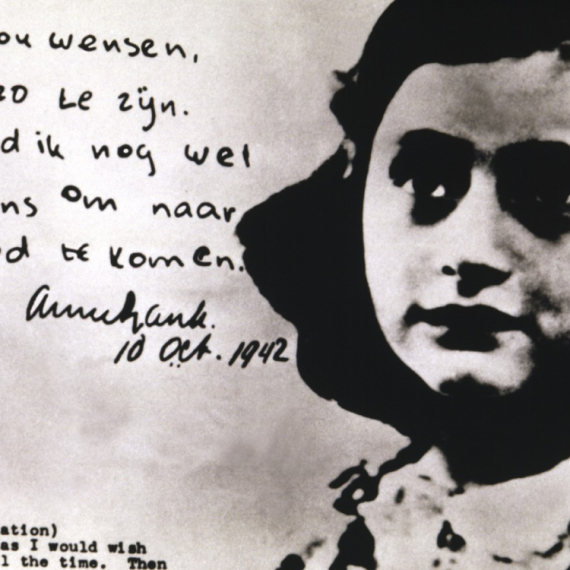 ou wensen,
zo te zijn.
d ik nog wel
ns om naar
od te komen.
Annefrank.
10 Oct. 1942
ation)
as I would wish
l the time. Then